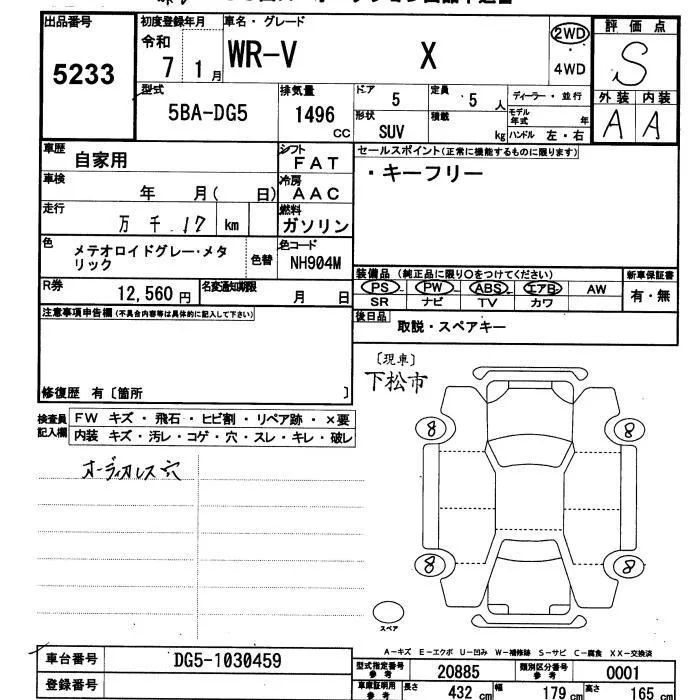 出品番号
5233
初度登録年月
令和
7 1月
車名・グレード
WR-V X
2WD
4WD
評価点
S
外装 内装
A A
型式
5BA-DG5
排気量
1496
cc
ドア 5
定員 5 人
ディーラー・並行
形状 SUV
積載 kg
モデル年式 年
ハンドル 左・右
車歴
自家用
シフト
FAT
セールスポイント(正常に機能するものに限ります)
・キーフリー
車検
年 月( 日)
冷房
AAC
走行
万 千 17 km
燃料
ガソリン
色
メテオロイドグレー・メタリック
色替
色コード
NH904M
装備品 (純正品に限り○をつけてください)
新車保証書
PS PW ABS エアB AW
SR ナビ TV カワ
有・無
R券
12,560 円
名変通知期限
月 日
後日品
取説・スペアキー
注意事項申告欄(不具合内容等は具体的に記入して下さい)
修復歴 有〔箇所 〕
〔現車〕
下松市
検査員記入欄
FW キズ・飛石・ヒビ割・リペア跡・×要
内装 キズ・汚レ・コゲ・穴・スレ・キレ・破レ
オーディオレス穴
8 8
8 8
スペア
A-キズ E-エクボ U-凹み W-補修跡 S-サビ C-腐食 XX-交換済
車台番号
DG5-1030459
登録番号
型式指定番号
参考
20885
類別区分番号
参考
0001
車庫証明用
参考
長さ 432 cm
幅 179 cm
高さ 165 cm